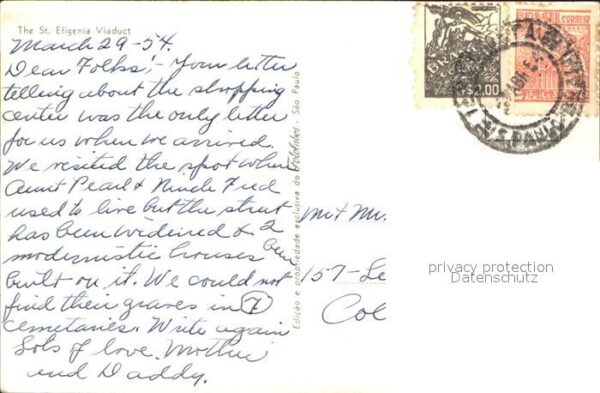 The St. Efigenia Viaduct
March 29-54.
Dear Folks; - Your letter
telling about the shopping
center was the only letter
for us when we arrived.
We visited the spot where
Aunt Pearl & Uncle Fred
used to live but the street
has been widened & 2
modernistic houses been
built on it. We could not
find their graves in 7
cemetaries. Write again
Lots of love. Mother
and Daddy.
Edição e propriedade exclusiva de Fotolabor - São Paulo
Mr & Mr
157 - Le
Col
privacy protection
Datenschutz
BRASIL CORREIO
S. PAULO